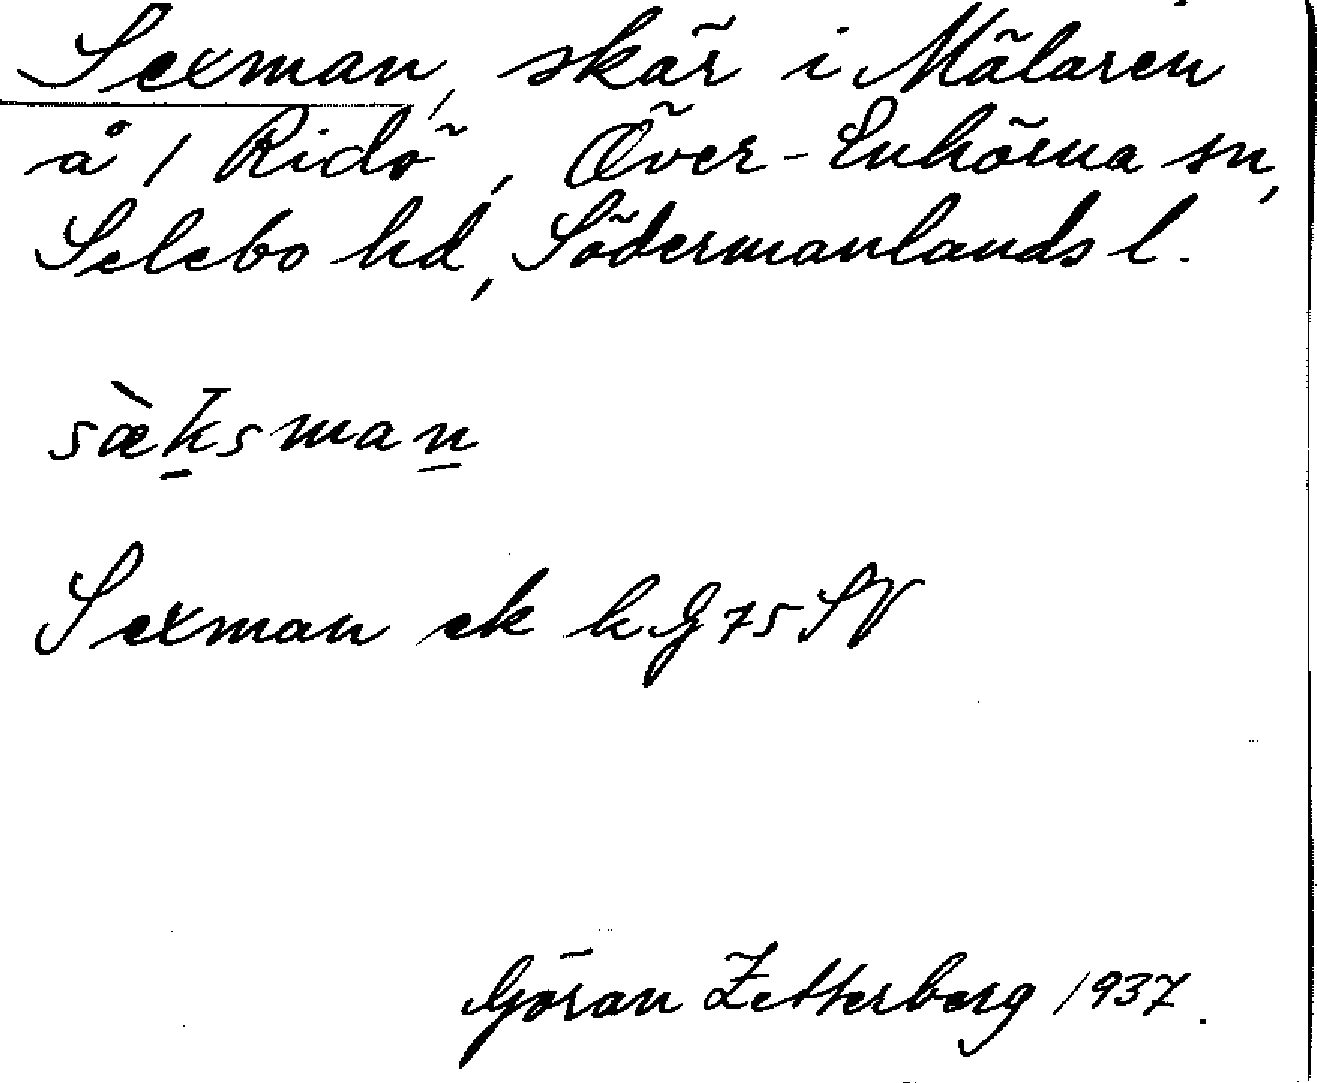 Sexman, skär i Mälaren
å 1 Ridö, Över-Enhörna sn,
Selebo hd, Södermanlands l.
sæ̀ksman
Sexman ek kG 75 SV
Göran Zetterberg 1937.